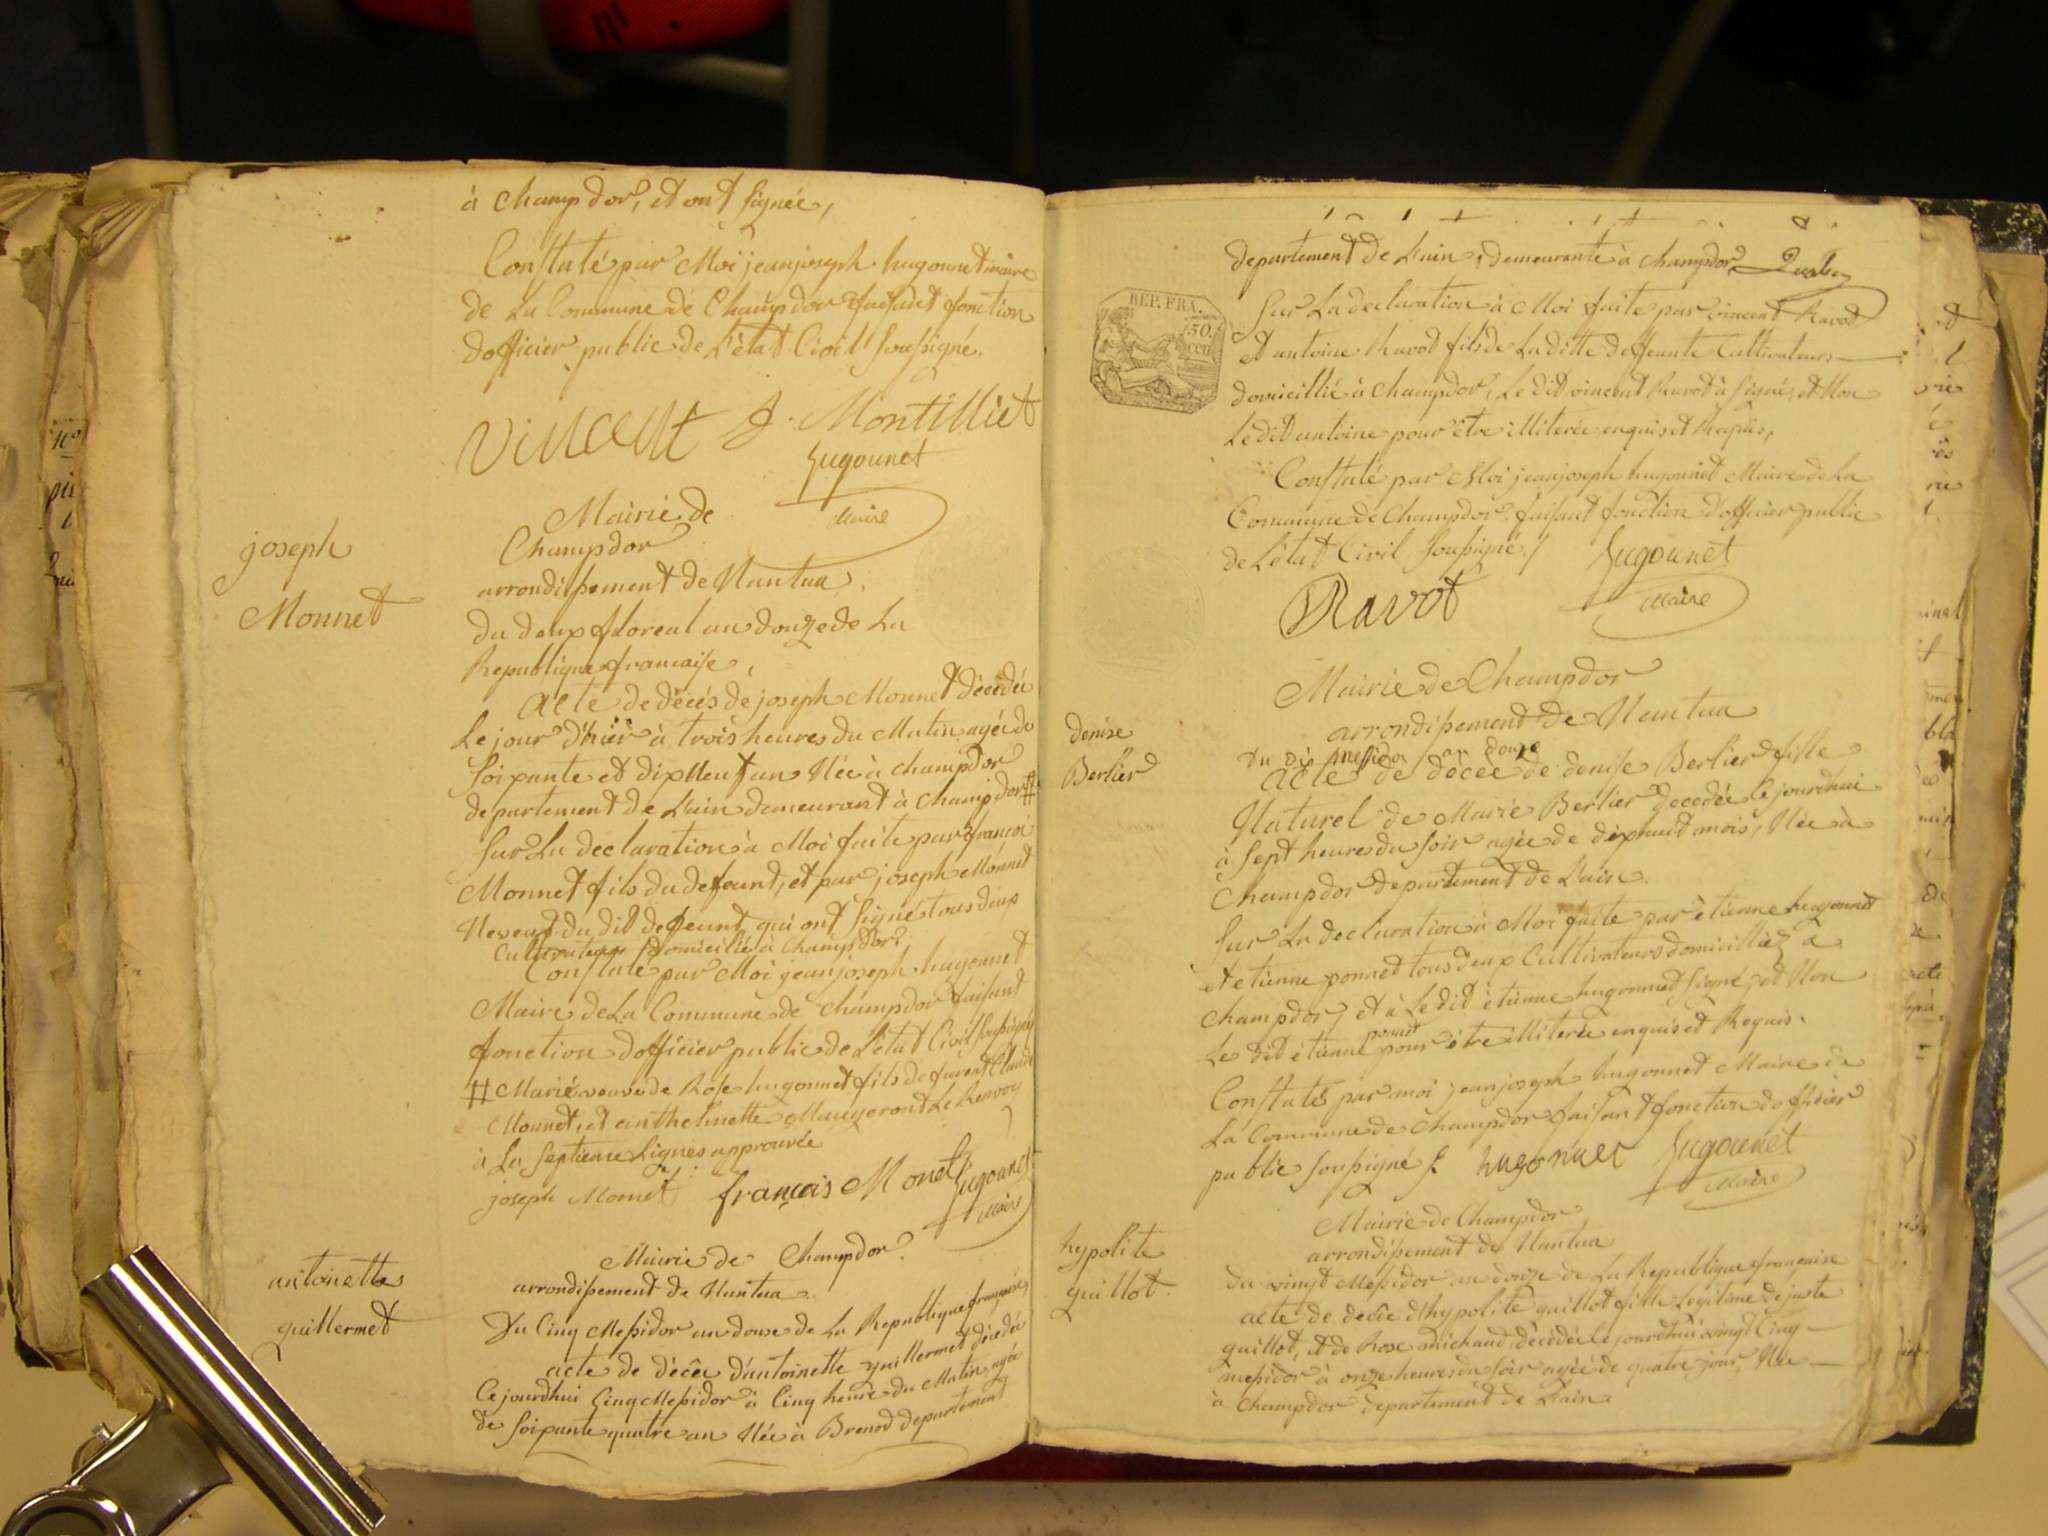 à Champdor, et ont signée,
Constaté par Moi jeanjoseph hugonnet maire
de La Commune de Champdor faisant fonction
dofficier public de L'état Civil soussigné.
VINCENT J. Montilliet
hugounet
Maire
joseph
Monnet
Mairie de
Champdor
arrondissement de Nantua
du deux floreal an douze de La
Republique francaise,
Acte de décés de joseph Monnet décédée
Le jour d'hièr à trois heures du Matin agée de
soixante et dixneuf an Née à champdor
departement de L'ain demeurant à champdor #
sur La declaration à Moi faite par francoi
Monnet fils du defeunt, et par joseph Monnet
Neveut du dit defeunt qui ont signé tous deux
Cultivateurs domicilié à Champdor,
Constaté par Moi jeanjoseph hugonnet
Maire de La Commune de champdor faisant
fonction dofficier public de L'état Civil soussigné
# Marié veuve de Rose hugonnet fils de furent Claude
Monnet, et anthelmette Maugeront Le Renvoy
à La septieme Lignes approuvée
joseph Monnet françois Monet hugounet
Maire
antoinette
guillermet
Mairie de Champdor
arrondissement de Nantua
Du Cinq Messidor an douse de La Republique française,
acte de décée d'antoinette guillermet décédée
Cejourdhui Cinq Messidor à Cinq heure du Matin, agée
de soixante quatre an Née à Brenod departement
departement de L'ain, demeurante à champdor,
REP. FRA.
50.
cen
Sur La declaration à Moi faite par vincent Ravot
et antoine Ravot fils de La ditte deffeunte Cultivateurs
domicillié à champdor, Le dit vincent Ravot à signé, et Non
Le dit antoine pour être illiterée enquis et Requis,
Constaté par Moi jeanjoseph hugonnet Maire de La
Commune de Champdor faisant fonction dofficier public
de L'état Civil soussigné /
Ravot hugounet
Maire
denise
Berlier
Mairie de Champdor
arrondissement de Nantua
du dix messidor an douze
acte de décée de denise Berlier fille
Naturel de Marie Berlier decedée Cejourdhui
à sept heures du soir agée de dixhuit mois, Née à
Champdor departement de L'ain.
Sur La declaration à Moi faite par etienne hugonnet
et etienne ponnet tous deux Cultivateurs domicilliez à
champdor, et à Le dit etienne hugonnet signé, et Non
Le dit etienne ponnet pour être illiterée enquis et Requis.
Constaté par moi jeanjoseph hugonnet Maire de
La Commune de Champdor faisant fonction dofficier
public soussigné hugonnet hugounet
Maire
hypolite
guillot.
Mairie de Champdor
arrondissement de Nantua
du vingt Messidor an douze de La Republique française
acte de decée d'hypolite guillot fille Legitime de juste
guillot, et de Rose michaud, décédée Cejourdhui vingt Cinq
messidor à onze heures du soir agée de quatre jour, Née
à Champdor departement de L'ain